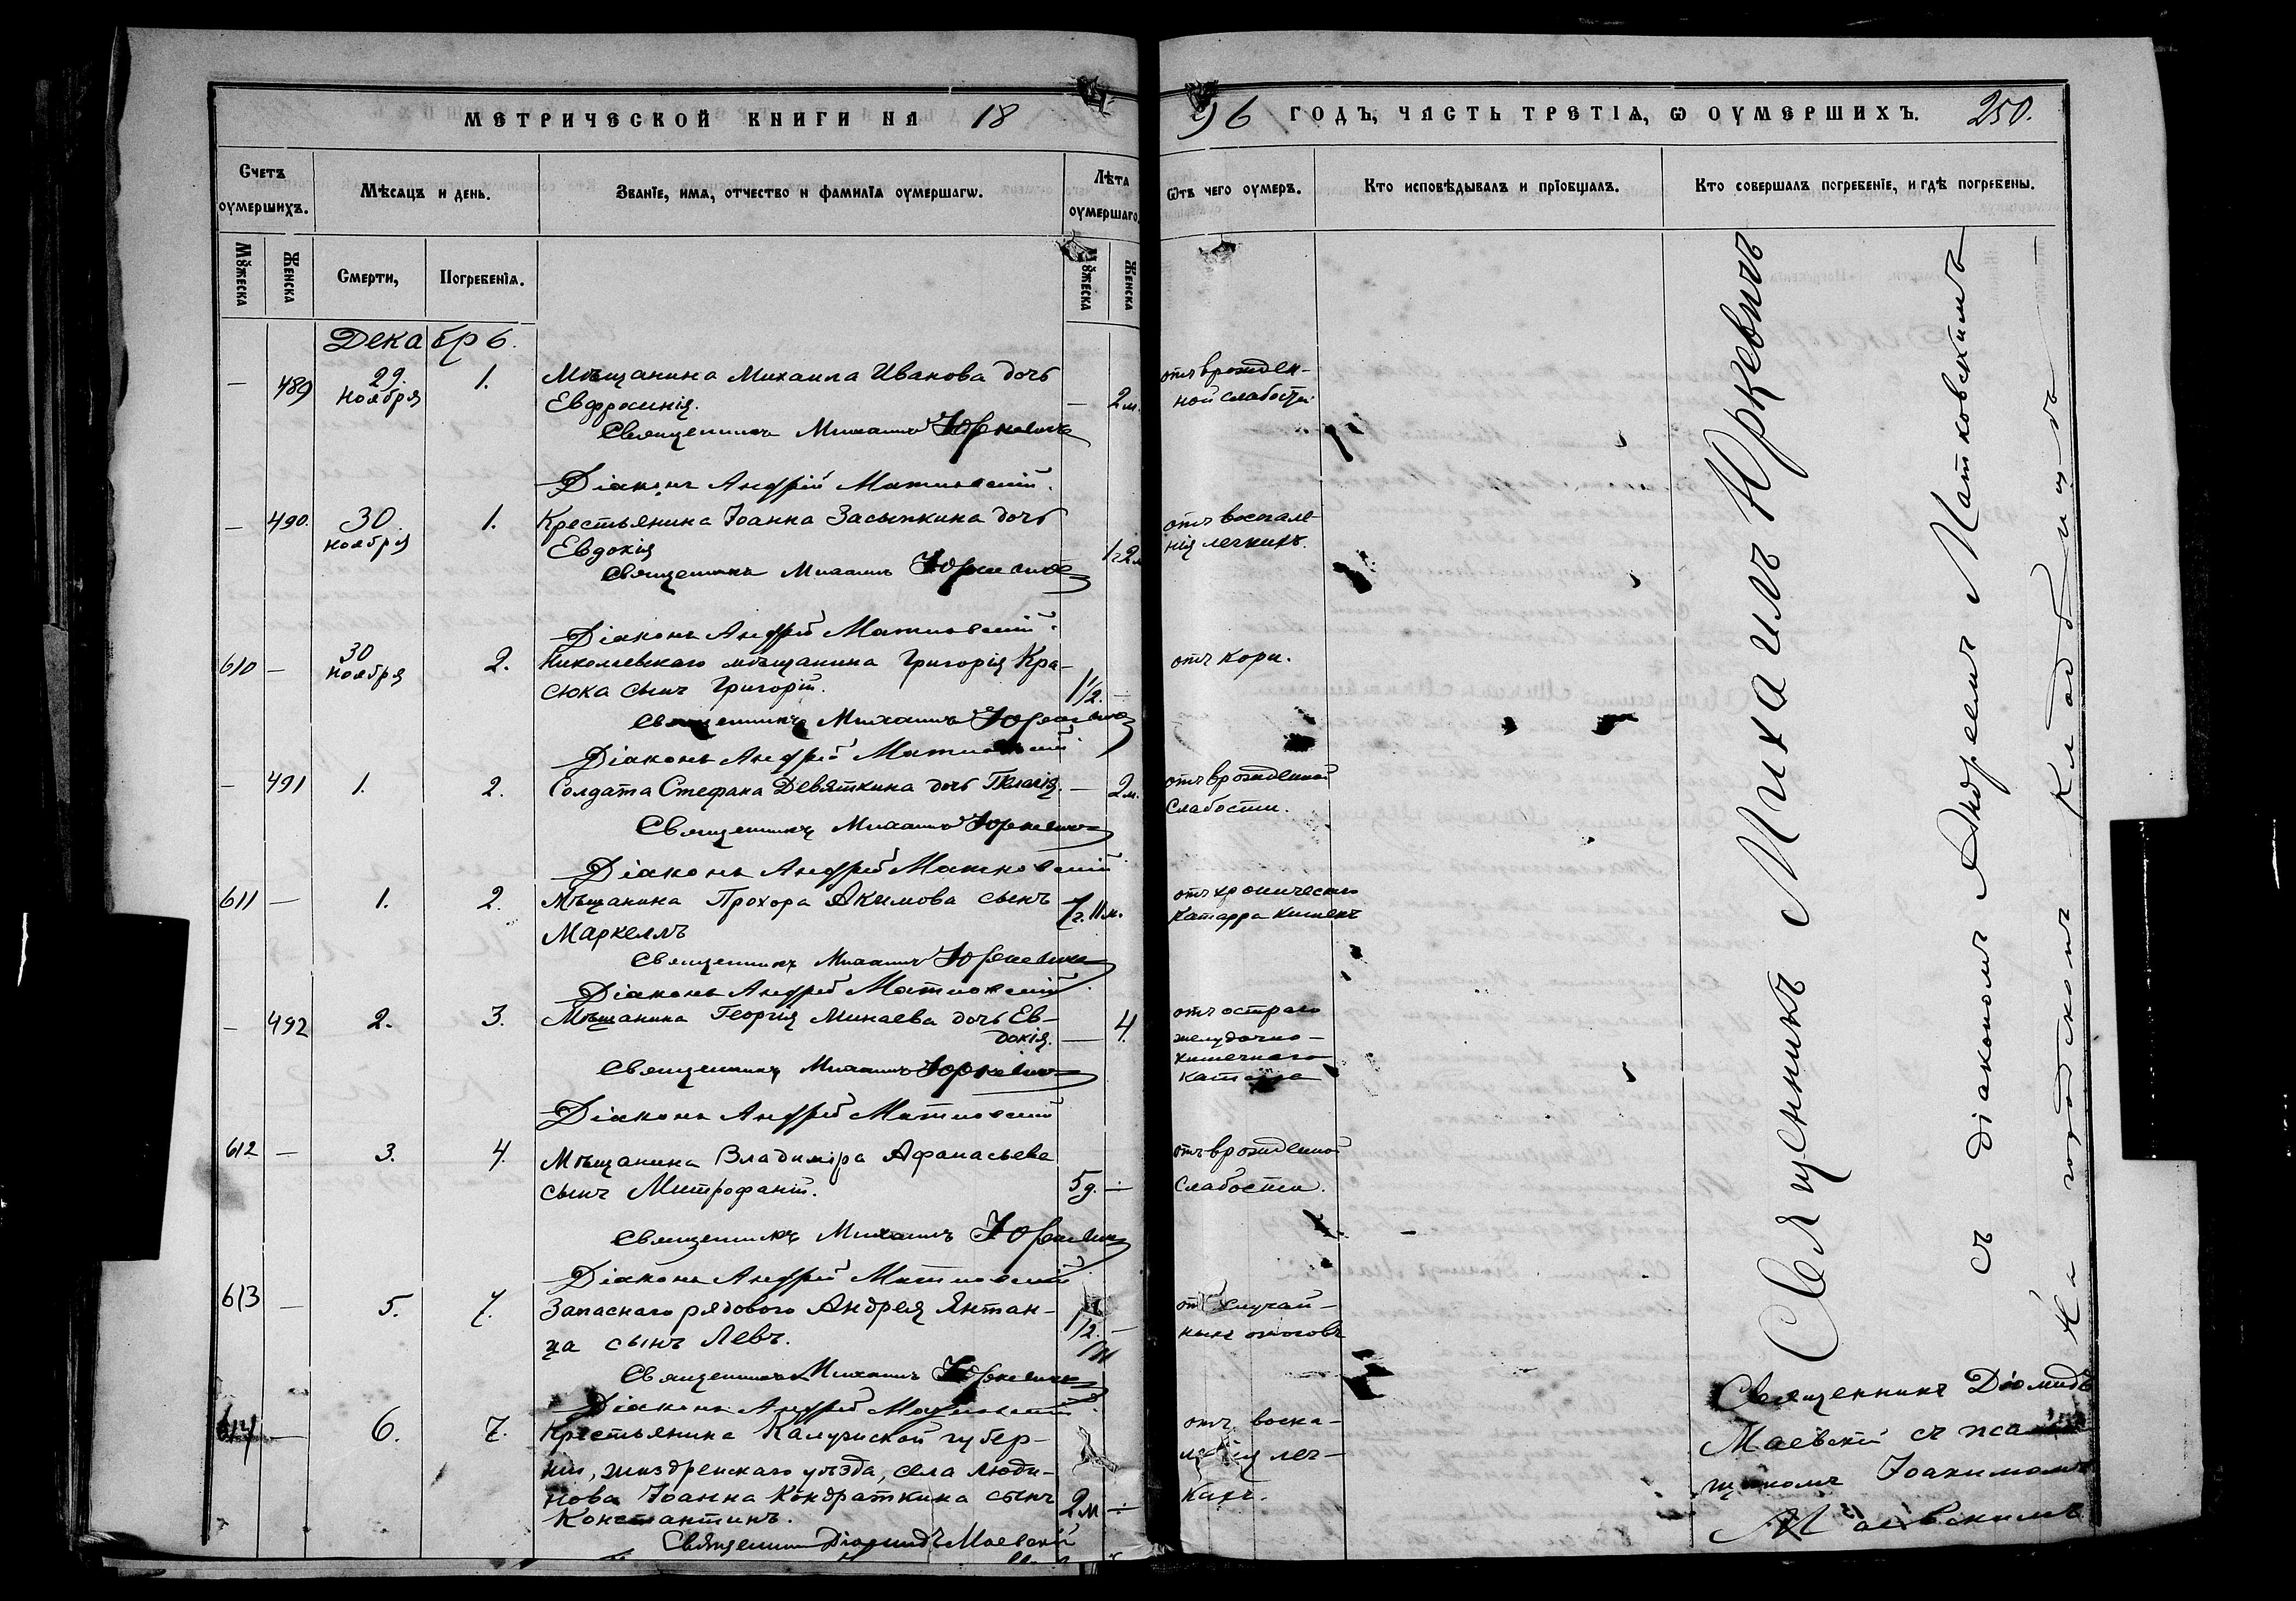 МЕТРИЧЕСКОЙ КНИГИ НА 18
96 ГОДЪ, ЧАСТЬ ТРЕТІЯ, Ѡ ОУМЕРШИХЪ. 250.
Счетъ оумершихъ.
Мѣсяцъ и день.
Званїе, имя, отчество и фамилїя оумершагѡ.
Лѣта оумершаго.
Ѿтъ чего оумеръ.
Кто исповѣдывалъ и прїобщалъ.
Кто совершалъ погребенїе, и гдѣ погребены.
Мꙋжеска
Женска
Смерти,
Погребенїя.
Мꙋжеска
Женска
Декабрь.
— 489 29. ноября 1. Мѣщанина Михаила Иванова дочь — 2 м. отъ врожден-
Евфросинія. ной слабости
Священникъ Михаилъ Юркевичъ
Діаконъ Андрей Матковскій.
— 490. 30 ноября 1. Крестьянина Іоанна Засыпкина дочь отъ воспале-
Евдокія 1 г. 2 м нія легкихъ.
Священникъ Михаилъ Юркевичъ
Діаконъ Андрей Матковскій.
610 — 30 ноября 2. Николаевскаго мѣщанина Григорія Кра- отъ кори.
сюка сынъ Григорій. 1 1/2. —
Священникъ Михаилъ Юркевичъ
Діаконъ Андрей Матковскій
— 491 1. 2. Солдата Стефана Девяткина дочь Пелагія. — 2 м. отъ врожденной
слабости.
Священникъ Михаилъ Юркевичъ
Діаконъ Андрей Матковскій
611 — 1. 2. Мѣщанина Прохора Акимова сынъ 7 г. 11 м. отъ хроническаго
Маркеллъ катарра кишекъ
Священникъ Михаилъ Юркевичъ
Діаконъ Андрей Матковскій
— 492 2. 3. Мѣщанина Георгія Минаева дочь Ев- — 4. отъ остраго
докія. желудочно-
кишечнаго
катарра
Священникъ Михаилъ Юркевичъ
Діаконъ Андрей Матковскій
612 — 3. 4. Мѣщанина Владиміра Афанасьева отъ врожденной
сынъ Митрофанъ. 5 д. — слабости.
Священникъ Михаилъ Юркевичъ
Діаконъ Андрей Матковскій
613 — 5. 7. Запаснаго рядового Андрея Янтан- 1/2. — отъ случай-
ца сынъ Левъ. ныхъ ожоговъ
Священникъ Михаилъ Юркевичъ
Діаконъ Андрей Матковскій
614 — 6. 7. Крестьянина Калужской губер- отъ воспа-
ніи, жиздренскаго уѣзда, села Люди- ленія лег-
нова Іоанна Кондраткина сынъ 2 м — кихъ.
Константинъ.
Священникъ Діомидъ Маевскій
Священникъ Михаилъ Юркевичъ
съ діакономъ Андреемъ Матковскимъ
На городскомъ кладбищѣ
Священникъ Діомидъ
Маевскій съ псалом-
щикомъ Іоакимомъ
Маевскимъ